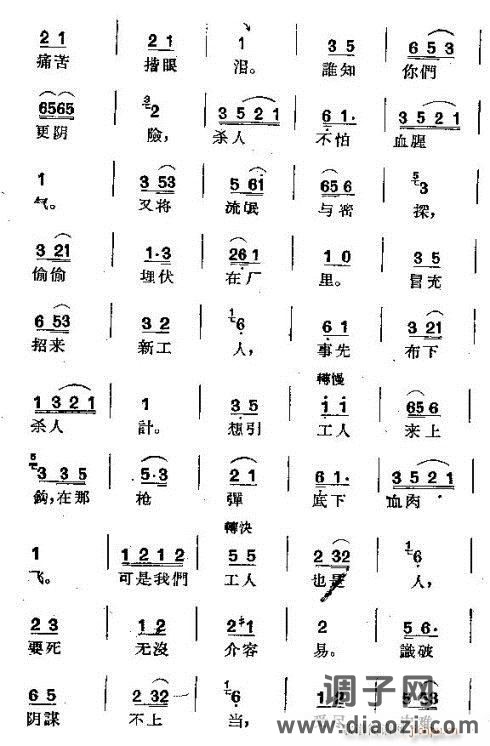 2 1 | 2 1 | 1 | 3 5 | 6 5 3
痛苦 揩眼 泪。 誰知 你們
6565 | 3 2 | 3 5 2 1 | 6 1. | 3 5 2 1
更阴 險, 杀人 不怕 血腥
1 | 3 53 | 5 61 | 65 6 | 5 3
气。 又将 流氓 与密 探,
3 21 | 1·3 | 26 1 | 1 0 | 3 5
偷偷 埋伏 在厂 里。 冒充
6 53 | 3 2 | 1 6 | 6 1 | 3 21
招来 新工 人, 事先 布下
轉慢
1 3 2 1 | 1 | 3 5 | i i | 65 6
杀人 計。 想引 工人 来上
5 3 3 5 | 5·3 | 2 1 | 6 1. | 3 5 2 1
鈎,在那 枪 彈 底下 血肉
轉快
1 | 1 2 1 2 | 5 5 | 2 32 | 1 6
飞。 可是我們 工人 也是 人,
2 3 | 1 2 | 2 #1 | 2 | 5 6·
要死 无沒 介容 易。 識破
6 5 | 2 32 | 1 6 | 1 2 | 5 6 53
阴謀 不上 当,
调子网
www.diaozi.com